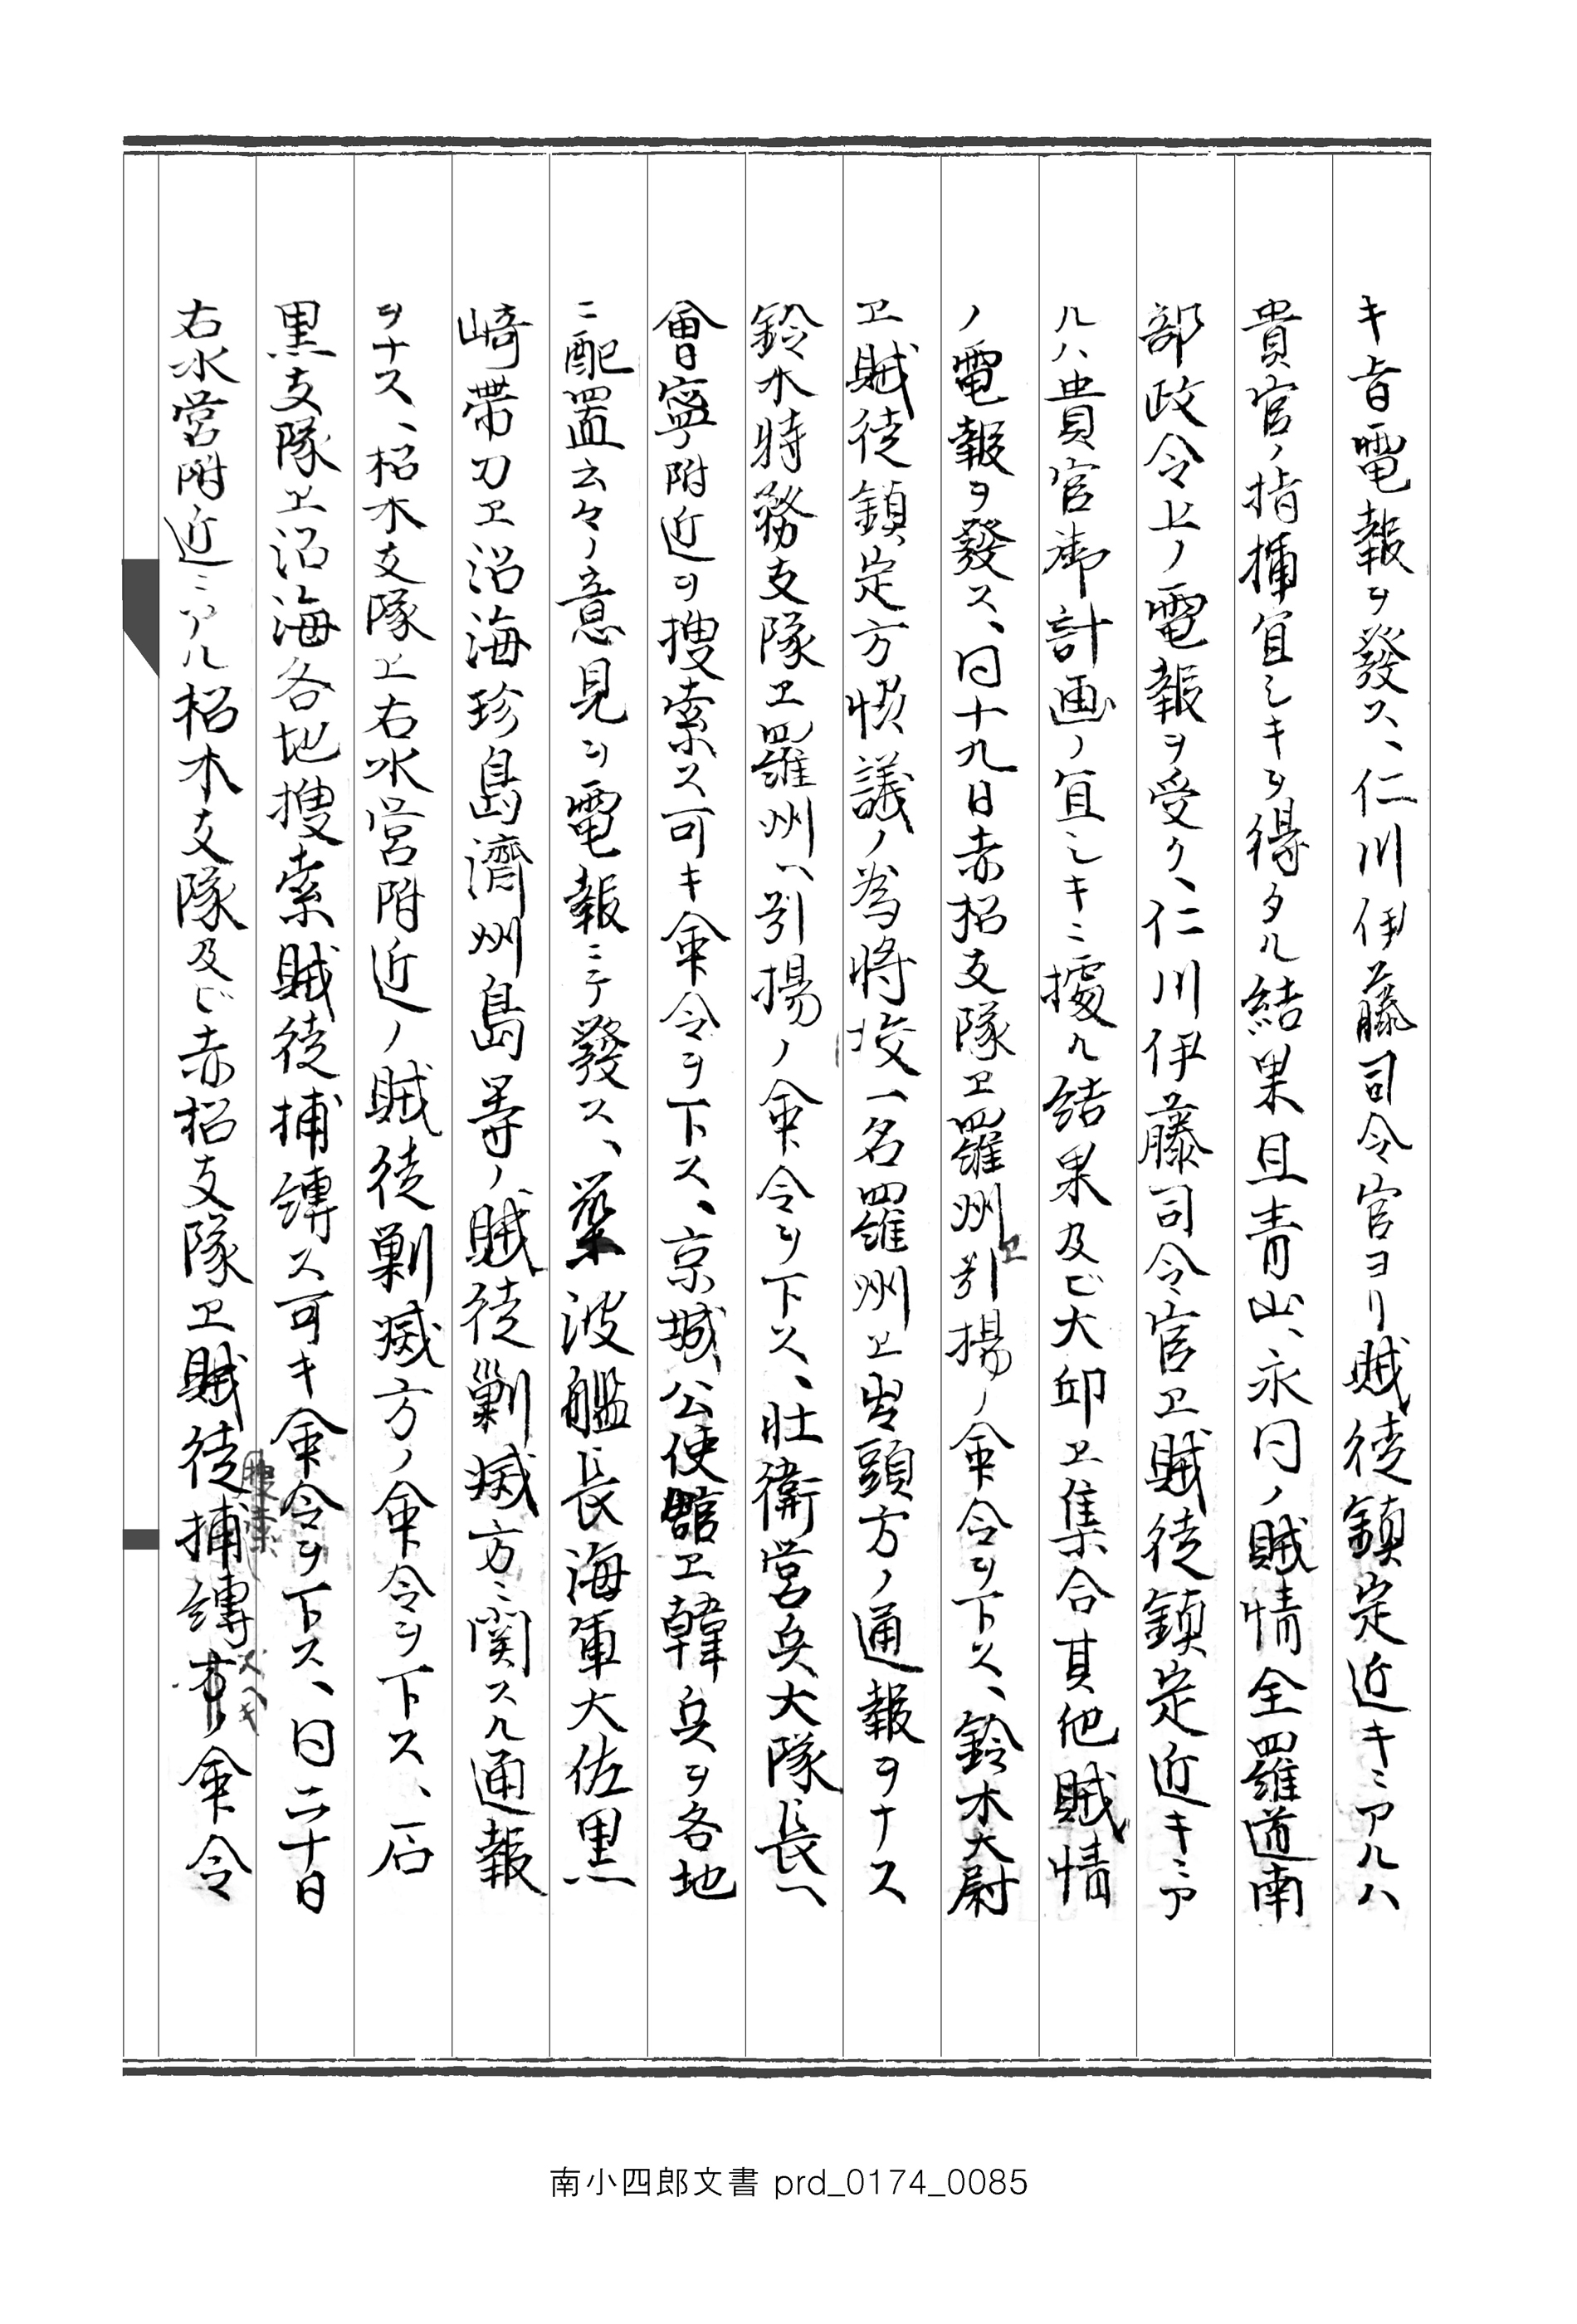 キ旨電報ヲ發ス、仁川伊藤司令官ヨリ賊徒鎮定近キニアルハ
貴官ノ指揮宜シキヲ得タル結果且青山、永同ノ賊情全羅道南
部政令上ノ電報ヲ受ク、仁川伊藤司令官卫賊徒鎮定近キニア
ルハ貴官御計画ノ宜シキニ據ル結果及ビ大邱卫集合其他賊情
ノ電報ヲ發ス、同十九日赤松支隊卫羅州卫引揚ノ命令ヲ下ス、鈴木大尉
卫賊徒鎮定方 議ノ為将校一名羅州卫出頭方ノ通報ヲナス
鈴木特務支隊卫羅州ヘ引揚ノ命令ヲ下ス、壮衛営兵大隊長ヘ
會寧附近ヲ搜索ス可キ命令ヲ下ス、京城公使館卫韓兵ヲ各地
ニ配置云々ノ意見ヲ電報ニテ發ス、築波艦長海軍大佐黒
崎帯刀卫沿海珍島濟州島等ノ賊徒剿滅方ニ関スル通報
ヲナス、松木支隊卫右水営附近ノ賊徒剿滅方ノ命令ヲ下ス、石
黒支隊卫沿海各地搜索賊徒捕縛ス可キ命令ヲ下ス、同二十日
右水営附近ニアル松木支隊及ビ赤松支隊卫賊徒搜索捕縛スヘキ命令